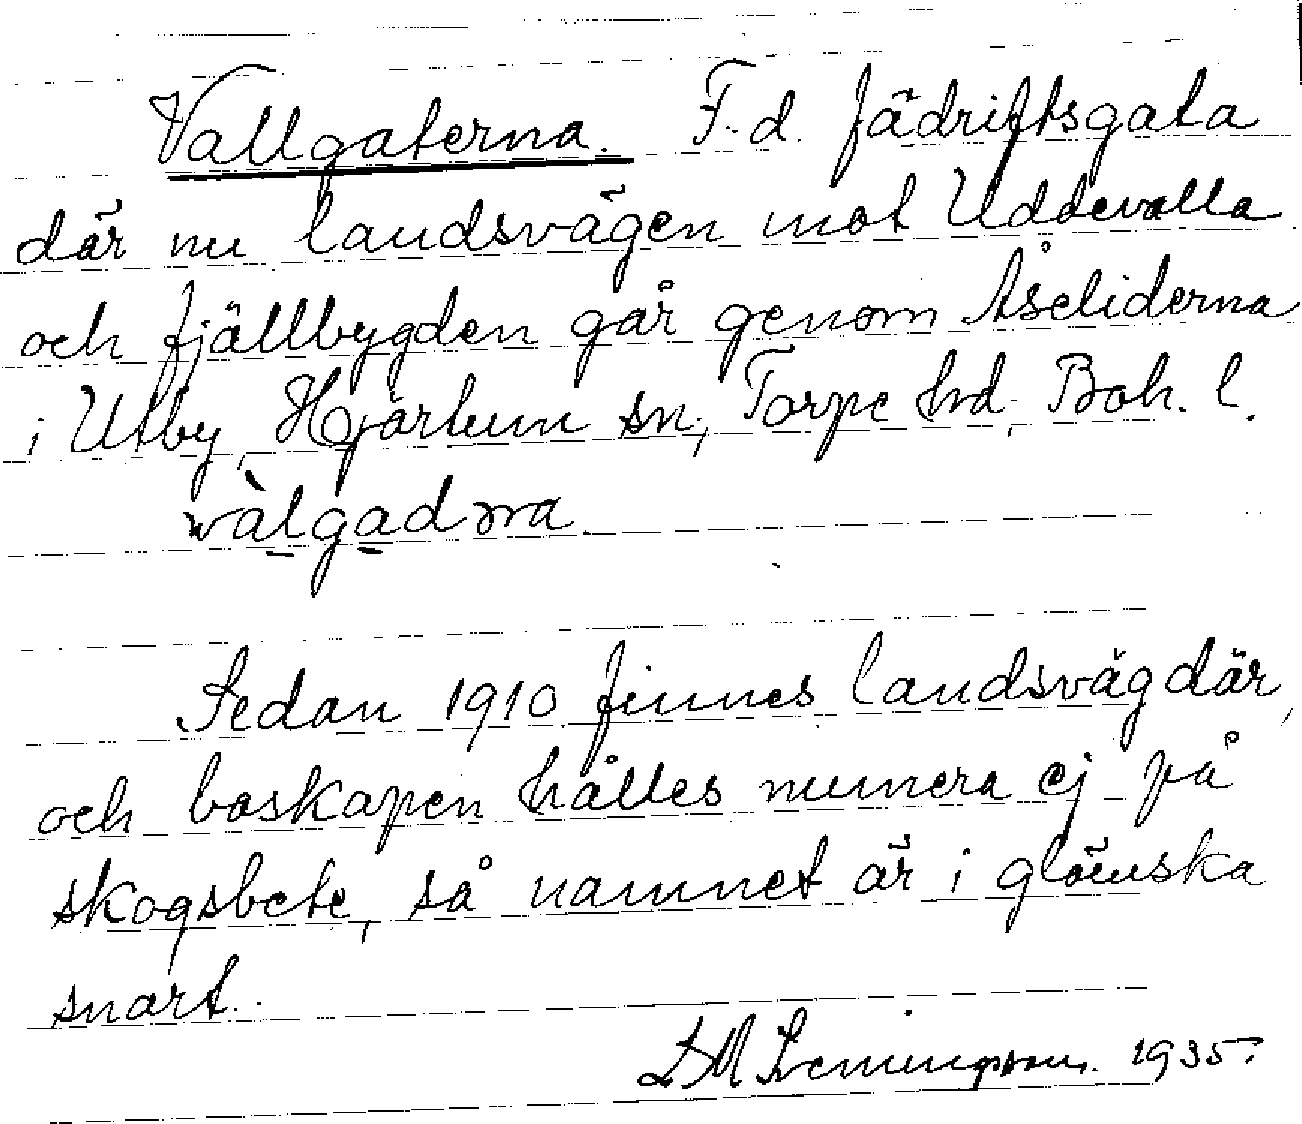 Vallgaterna. F. d. fädriftsgata
där nu landsvägen mot Uddevalla
och fjällbygden går genom Åseliderna
i Utby, Hjärtum sn, Torpe hd, Boh. l.
wàlgadṛna
Sedan 1910 finnes landsväg där,
och boskapen hålles numera ej på
skogsbete, så namnet är i glömska
snart.
1935.